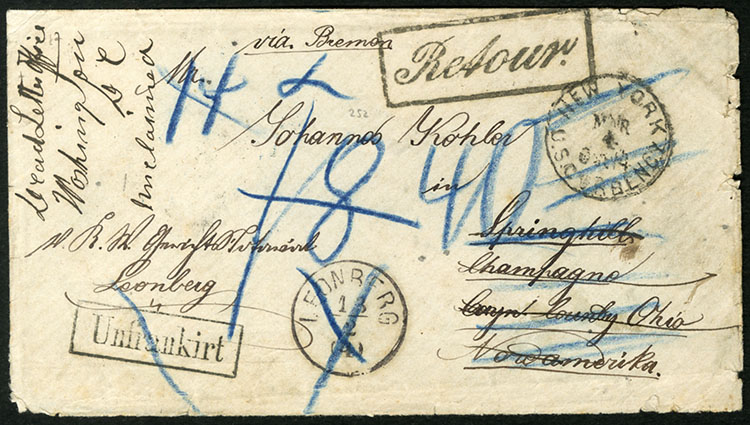 Dead Letter Office
Washington
D C
Unclaimed
via Bremen
Retour.
Mr.
14
252
Johannes Kohler
in
NEW YORK
MAR
U.S. CURRENCY
48
40
Springhills
Champagne
County Ohio
Nordamerika.
v. K. W.
Leonberg
LEONBERG
2
Unfrankirt